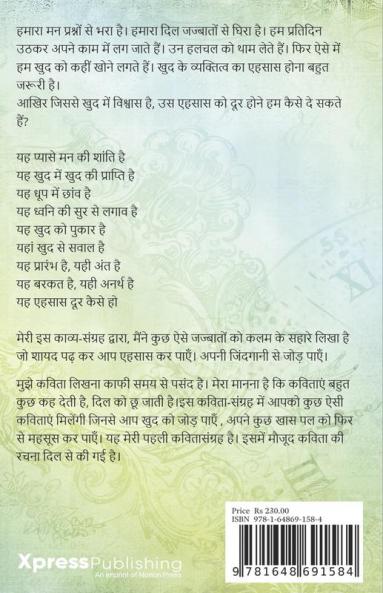 हमारा मन प्रश्नों से भरा है। हमारा दिल जज्बातों से घिरा है। हम प्रतिदिन
उठकर अपने काम में लग जाते हैं। उन हलचल को थाम लेते हैं। फिर ऐसे में
हम खुद को कहीं खोने लगते हैं। खुद के व्यक्तित्व का एहसास होना बहुत
जरूरी है।
आखिर जिससे खुद में विश्वास है, उस एहसास को दूर होने हम कैसे दे सकते
हैं?
यह प्यासे मन की शांति है
यह खुद में खुद की प्राप्ति है
यह धूप में छांव है
यह ध्वनि की सुर से लगाव है
यह खुद को पुकार है
यहां खुद से सवाल है
यह प्रारंभ है, यही अंत है
यह बरकत है, यही अनर्थ है
यह एहसास दूर कैसे हो
मेरी इस काव्य-संग्रह द्वारा, मैंने कुछ ऐसे जज्बातों को कलम के सहारे लिखा है
जो शायद पढ़ कर आप एहसास कर पाएँ। अपनी जिंदगानी से जोड़ पाएँ।
मुझे कविता लिखना काफी समय से पसंद है। मेरा मानना है कि कविताएं बहुत
कुछ कह देती है, दिल को छू जाती है।इस कविता-संग्रह में आपको कुछ ऐसी
कविताएं मिलेंगी जिनसे आप खुद को जोड़ पाएँ , अपने कुछ खास पल को फिर
से महसूस कर पाएँ। यह मेरी पहली कवितासंग्रह है। इसमें मौजूद कविता की
रचना दिल से की गई है।
Price Rs 230.00
ISBN 978-1-64869-158-4
9 781648 691584
XpressPublishing
An imprint of Notion Press